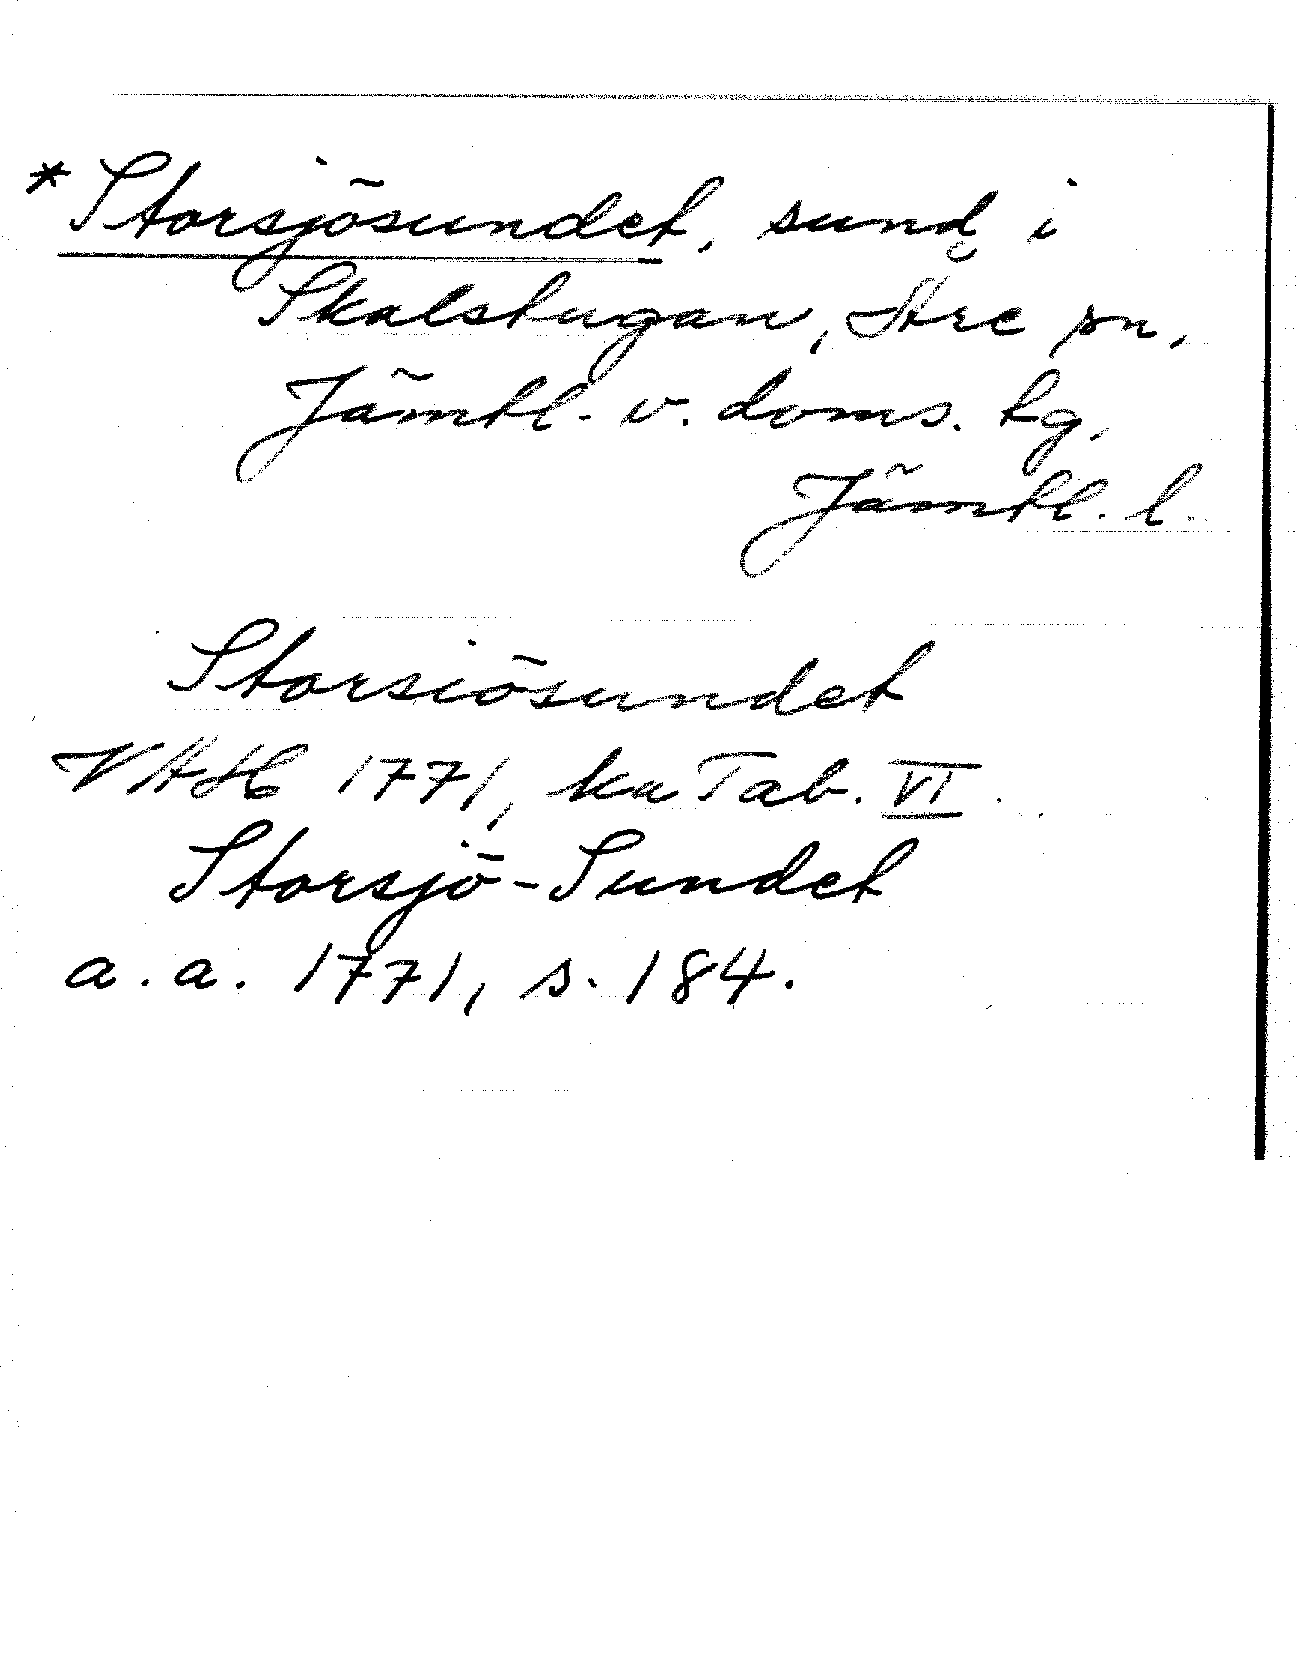 *Storsjösundet, sund i
Skalstugan, Åre sn.
Jämtl. v. doms. tg.
Jämtl. l.
Storsiösundet
VAH 1771, ka Tab. VI.
Storsjö-Sundet
a. a. 1771, s. 184.